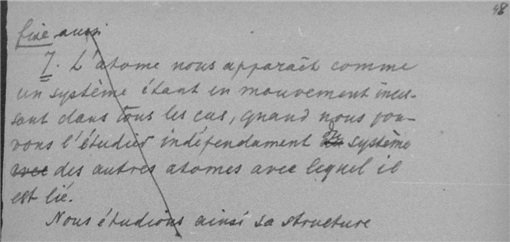 48
fixe aussi
7. L'atome nous apparaît comme
un système étant en mouvement inces-
sant dans tous les cas, quand nous pou-
vons l'étudier indépendament du système
avec des autres atomes avec lequel il
est lié.
Nous étudions ainsi sa structure